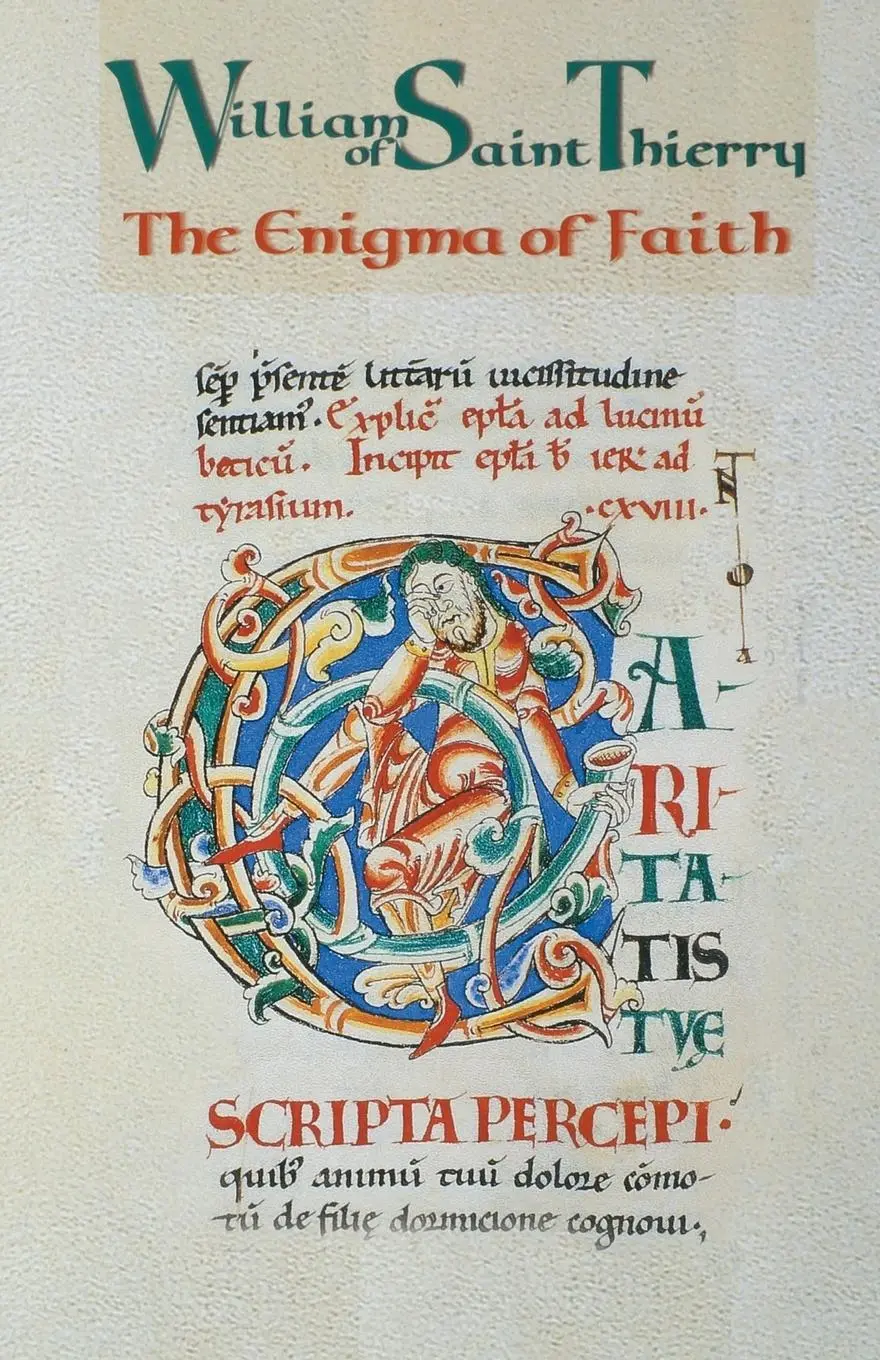 William of Saint Thierry
The Enigma of Faith
sēp p̄sentē littārū uicissitudine
sentiam᾽. Explic̄ epła ad lucinū
beticū. Incipit epła b̄ ier̄ ad
tyrasium. .cxviii.
CA-
RI-
TA-
TIS
TVE
SCRIPTA PERCEPI.
quib᾽ animū tuū dolore cōmo-
tū de filię dormicione cognoui.,